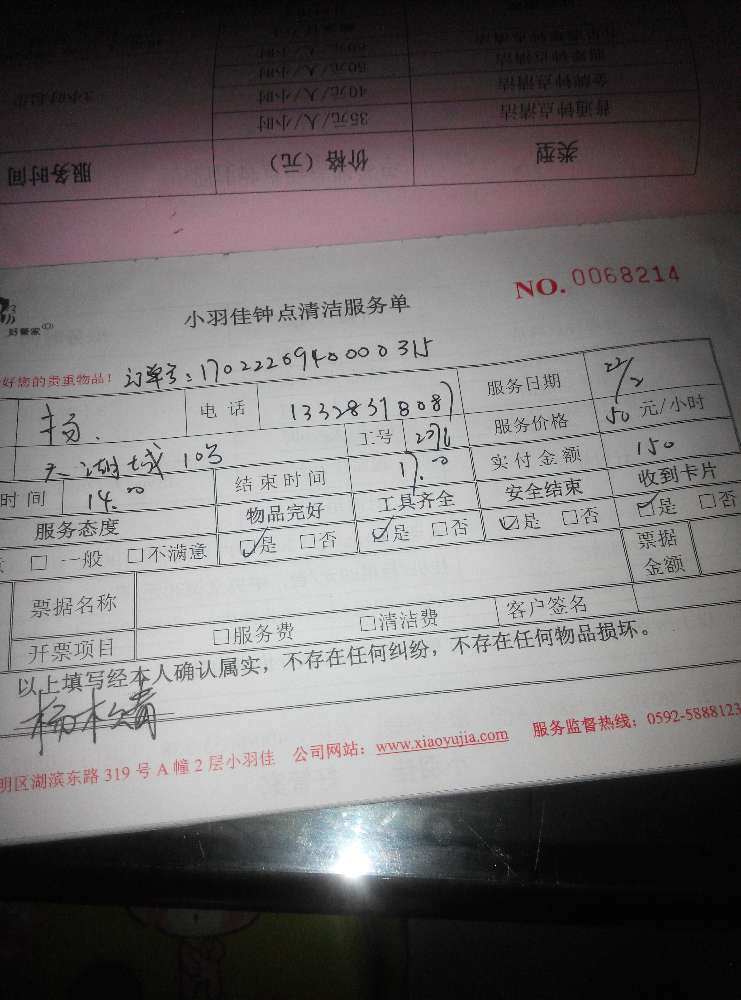 服务时间 价格（元） 类型
35元/人/小时 普通钟点清洁
40元/人/小时 金牌钟点清洁
50元/人/小时
60元/人/小时
NO. 0068214
小羽佳钟点清洁服务单
好管家
好您的贵重物品！ 订单号：1702226940000315
杨. 电话 13328378087 服务日期 22/2
10号 工号 服务价格 50 元/小时
时间 14.00 结束时间 17.00 实付金额 150
服务态度 物品完好 工具齐全 安全结束 收到卡片
□一般 □不满意 ☑是 □否 ☑是 □否 ☑是 □否 ☑是 □否
票据名称 票据金额
开票项目 □服务费 □清洁费 客户签名
以上填写经本人确认属实，不存在任何纠纷，不存在任何物品损坏。
明区湖滨东路 319 号 A 幢 2 层小羽佳 公司网站：www.xiaoyujia.com 服务监督热线：0592-5888123